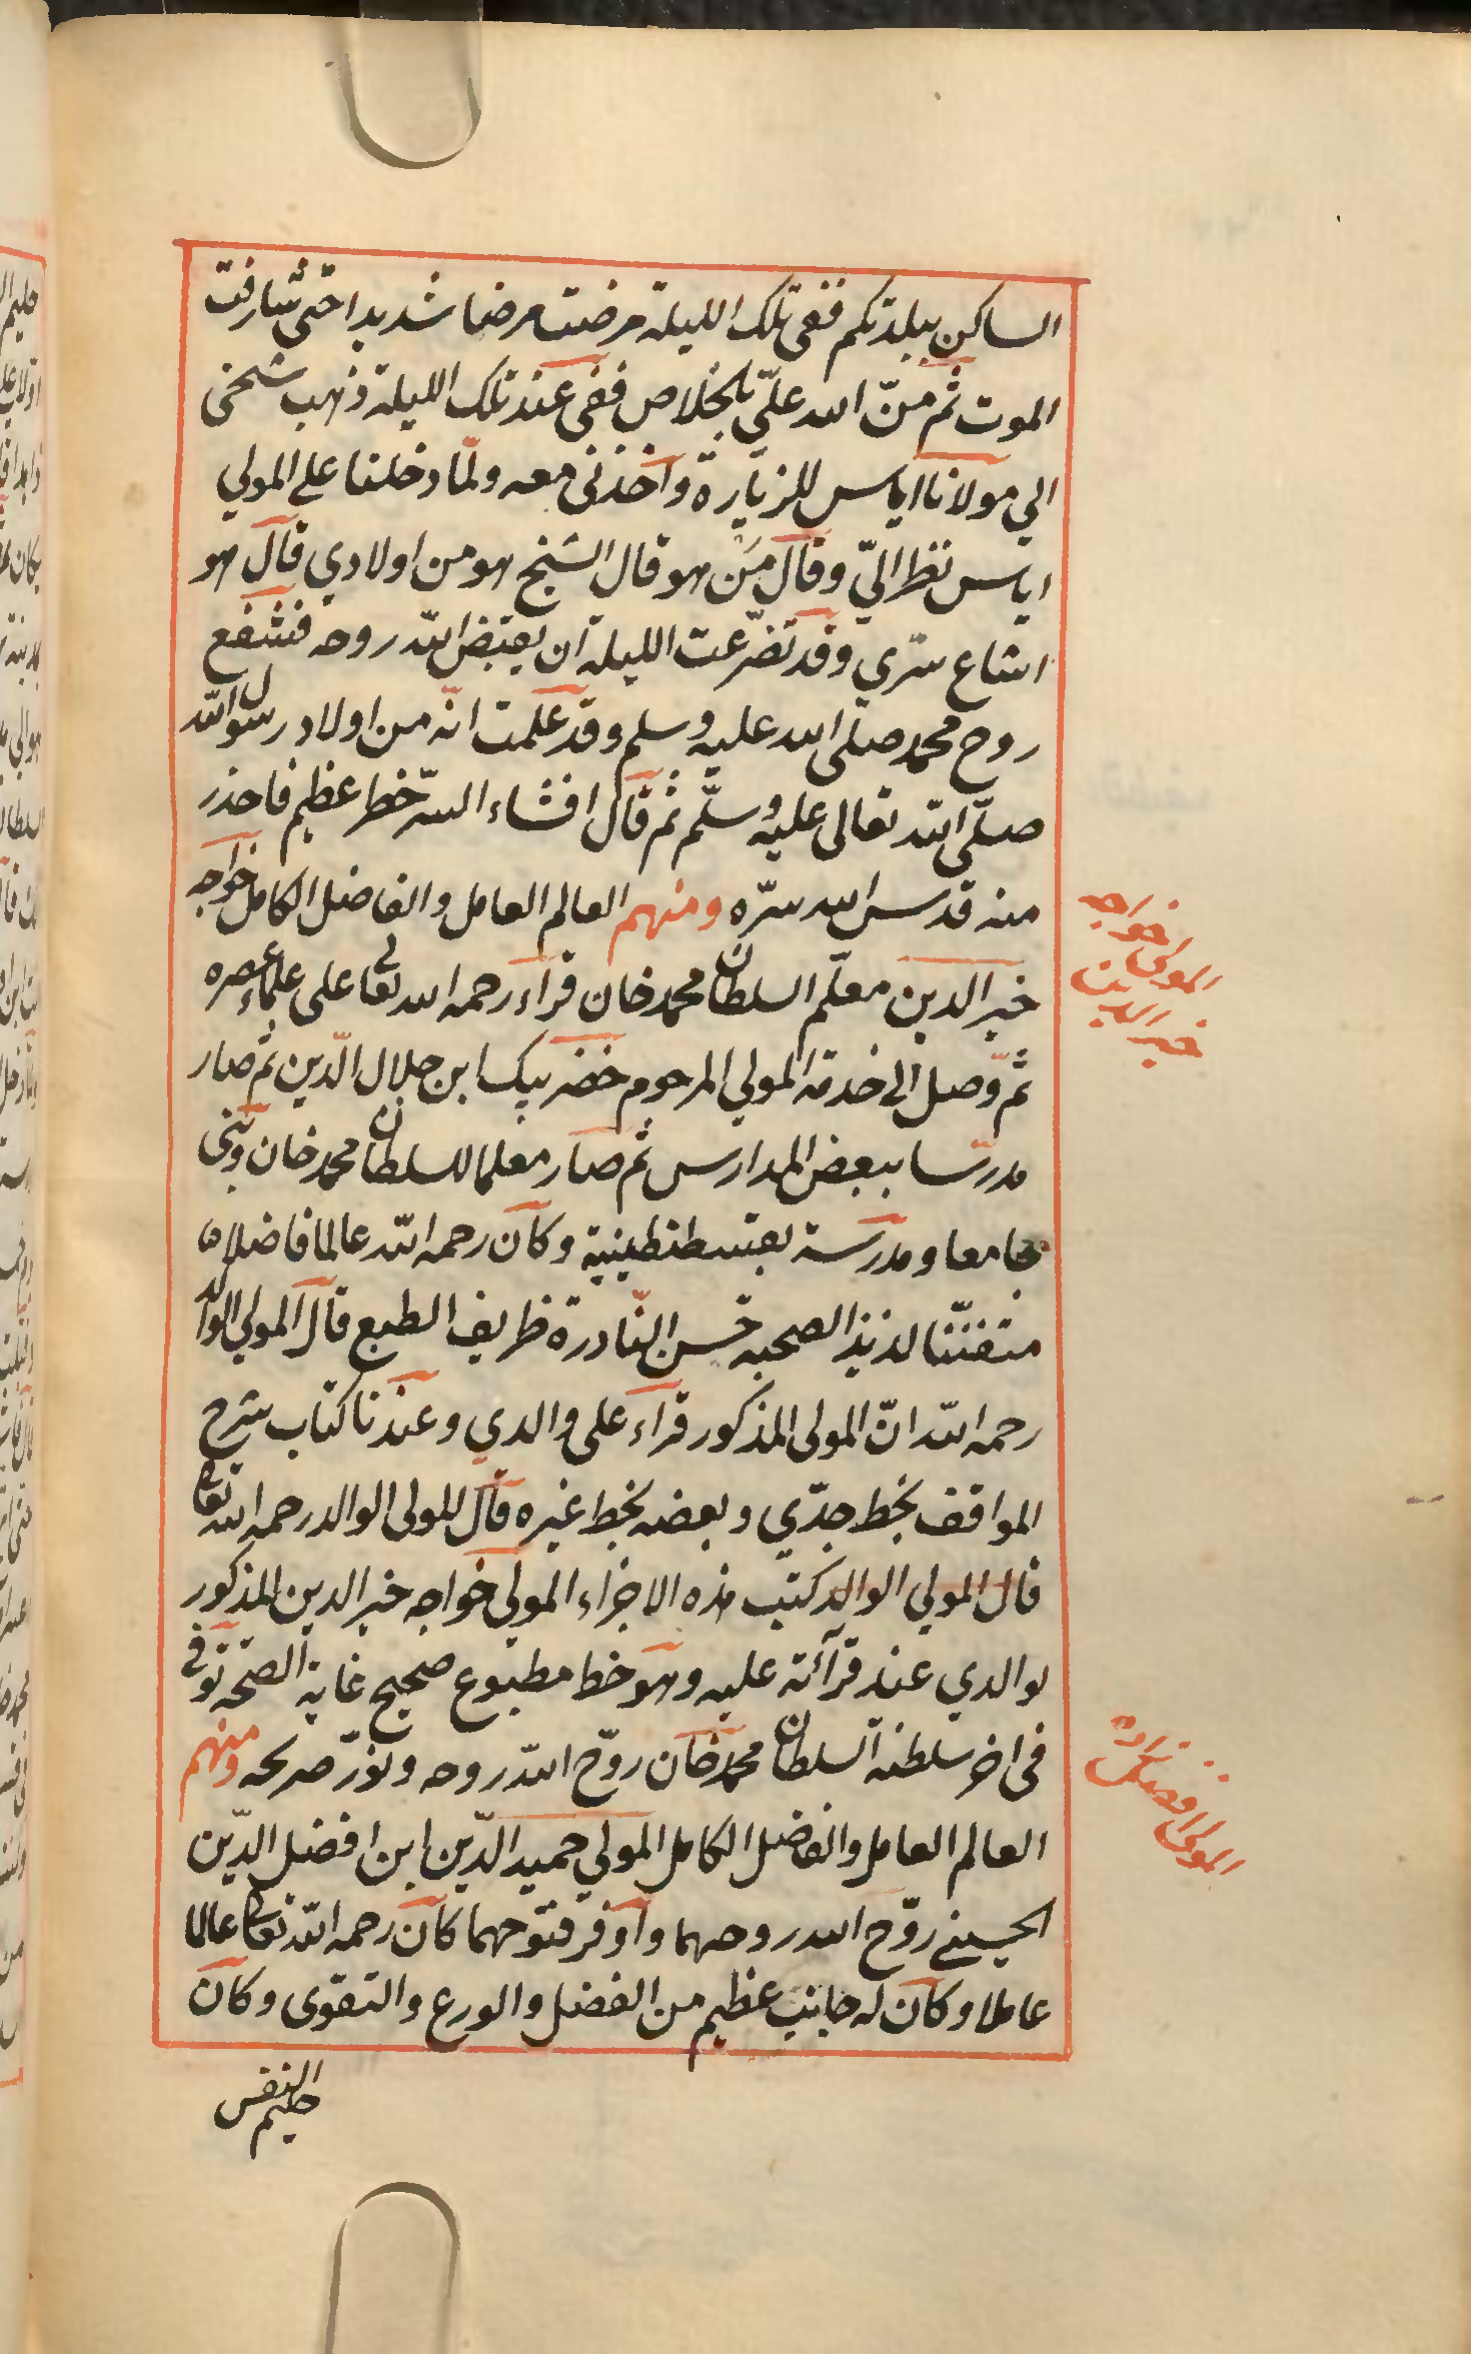 الساكن ببلدتكم ففى تلك الليلة مرضت مرضا شديدا حتى شارفت
الموت ثم منّ الله علىّ بالخلاص ففى غد تلك الليلة ذهب شيخى
الي مولانا اياس للزيارة وأخذنى معه ولمّا دخلنا على المولي
اياس نظر اليّ وقال من هو قال الشيخ هو من اولادي قال هو
اشاع سرّي وقد تضرّعت الليلة ان يقبض الله روحه فشفع
روح محمد صلى الله عليه وسلم وقد علمت انه من اولاد رسول الله
صلّى الله تعالى عليه وسلّم ثم قال افشاء السرّ خطر عظيم فاحذر
منه قدس الله سرّه ومنهم العالم العامل والفاضل الكامل خواجه
خير الدين معلّم السلطان محمد خان قراء رحمه الله تعا على علماء عصره
ثمّ وصل الى خدمة المولي المرحوم خضر بيك ابن جلال الدّين ثم صار
مدرّسا ببعض المدارس ثم صار معلما للسلطان محمد خان وبنى
جامعا ومدرسة بقسطنطينية وكان رحمه الله عالما فاضلا
متفنّنا لذيذ الصحبه حسن النّادرة ظريف الطبع قال المولي الوالد
رحمه الله انّ المولى المذكور قراء على والدي وعندنا كتاب شرح
المواقف بخط جدّي وبعضه بخط غيره قال للولى الوالد رحمه الله تعا
قال المولي الوالد كتب هذه الاجزاء المولي خواجه خير الدين المذكور
لوالدي عند قرآئته عليه وهو خط مطبوع صحيح غاية الصّحه توفى
فى اخر سلطنة السلطان محمد خان روّح الله روحه ونوّر ضريحه ومنهم
العالم العامل والفاضل الكامل المولي حميد الدّين ابن افضل الدّين
الحسيني روّح الله روحهما وأوفر فتوحهما كان رحمه الله تعا عالما
عاملا وكان له جانب عظيم من الفضل والورع والتقوى وكان
حليم النفس
المولى خواجه
خير الدين
المولى افضل زاده